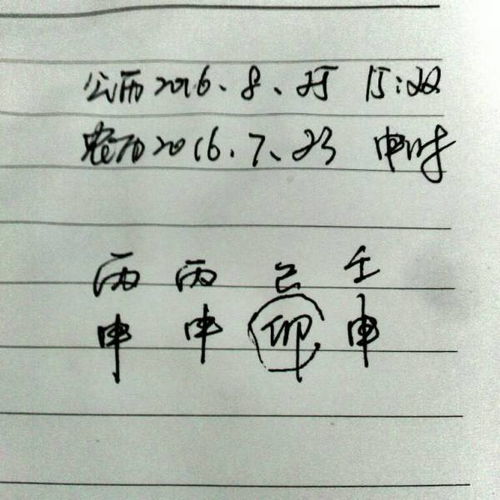 公历2016.8.25 15:22
农历2016.7.23 申时
丙 丙 己 壬
申 申 卯 申